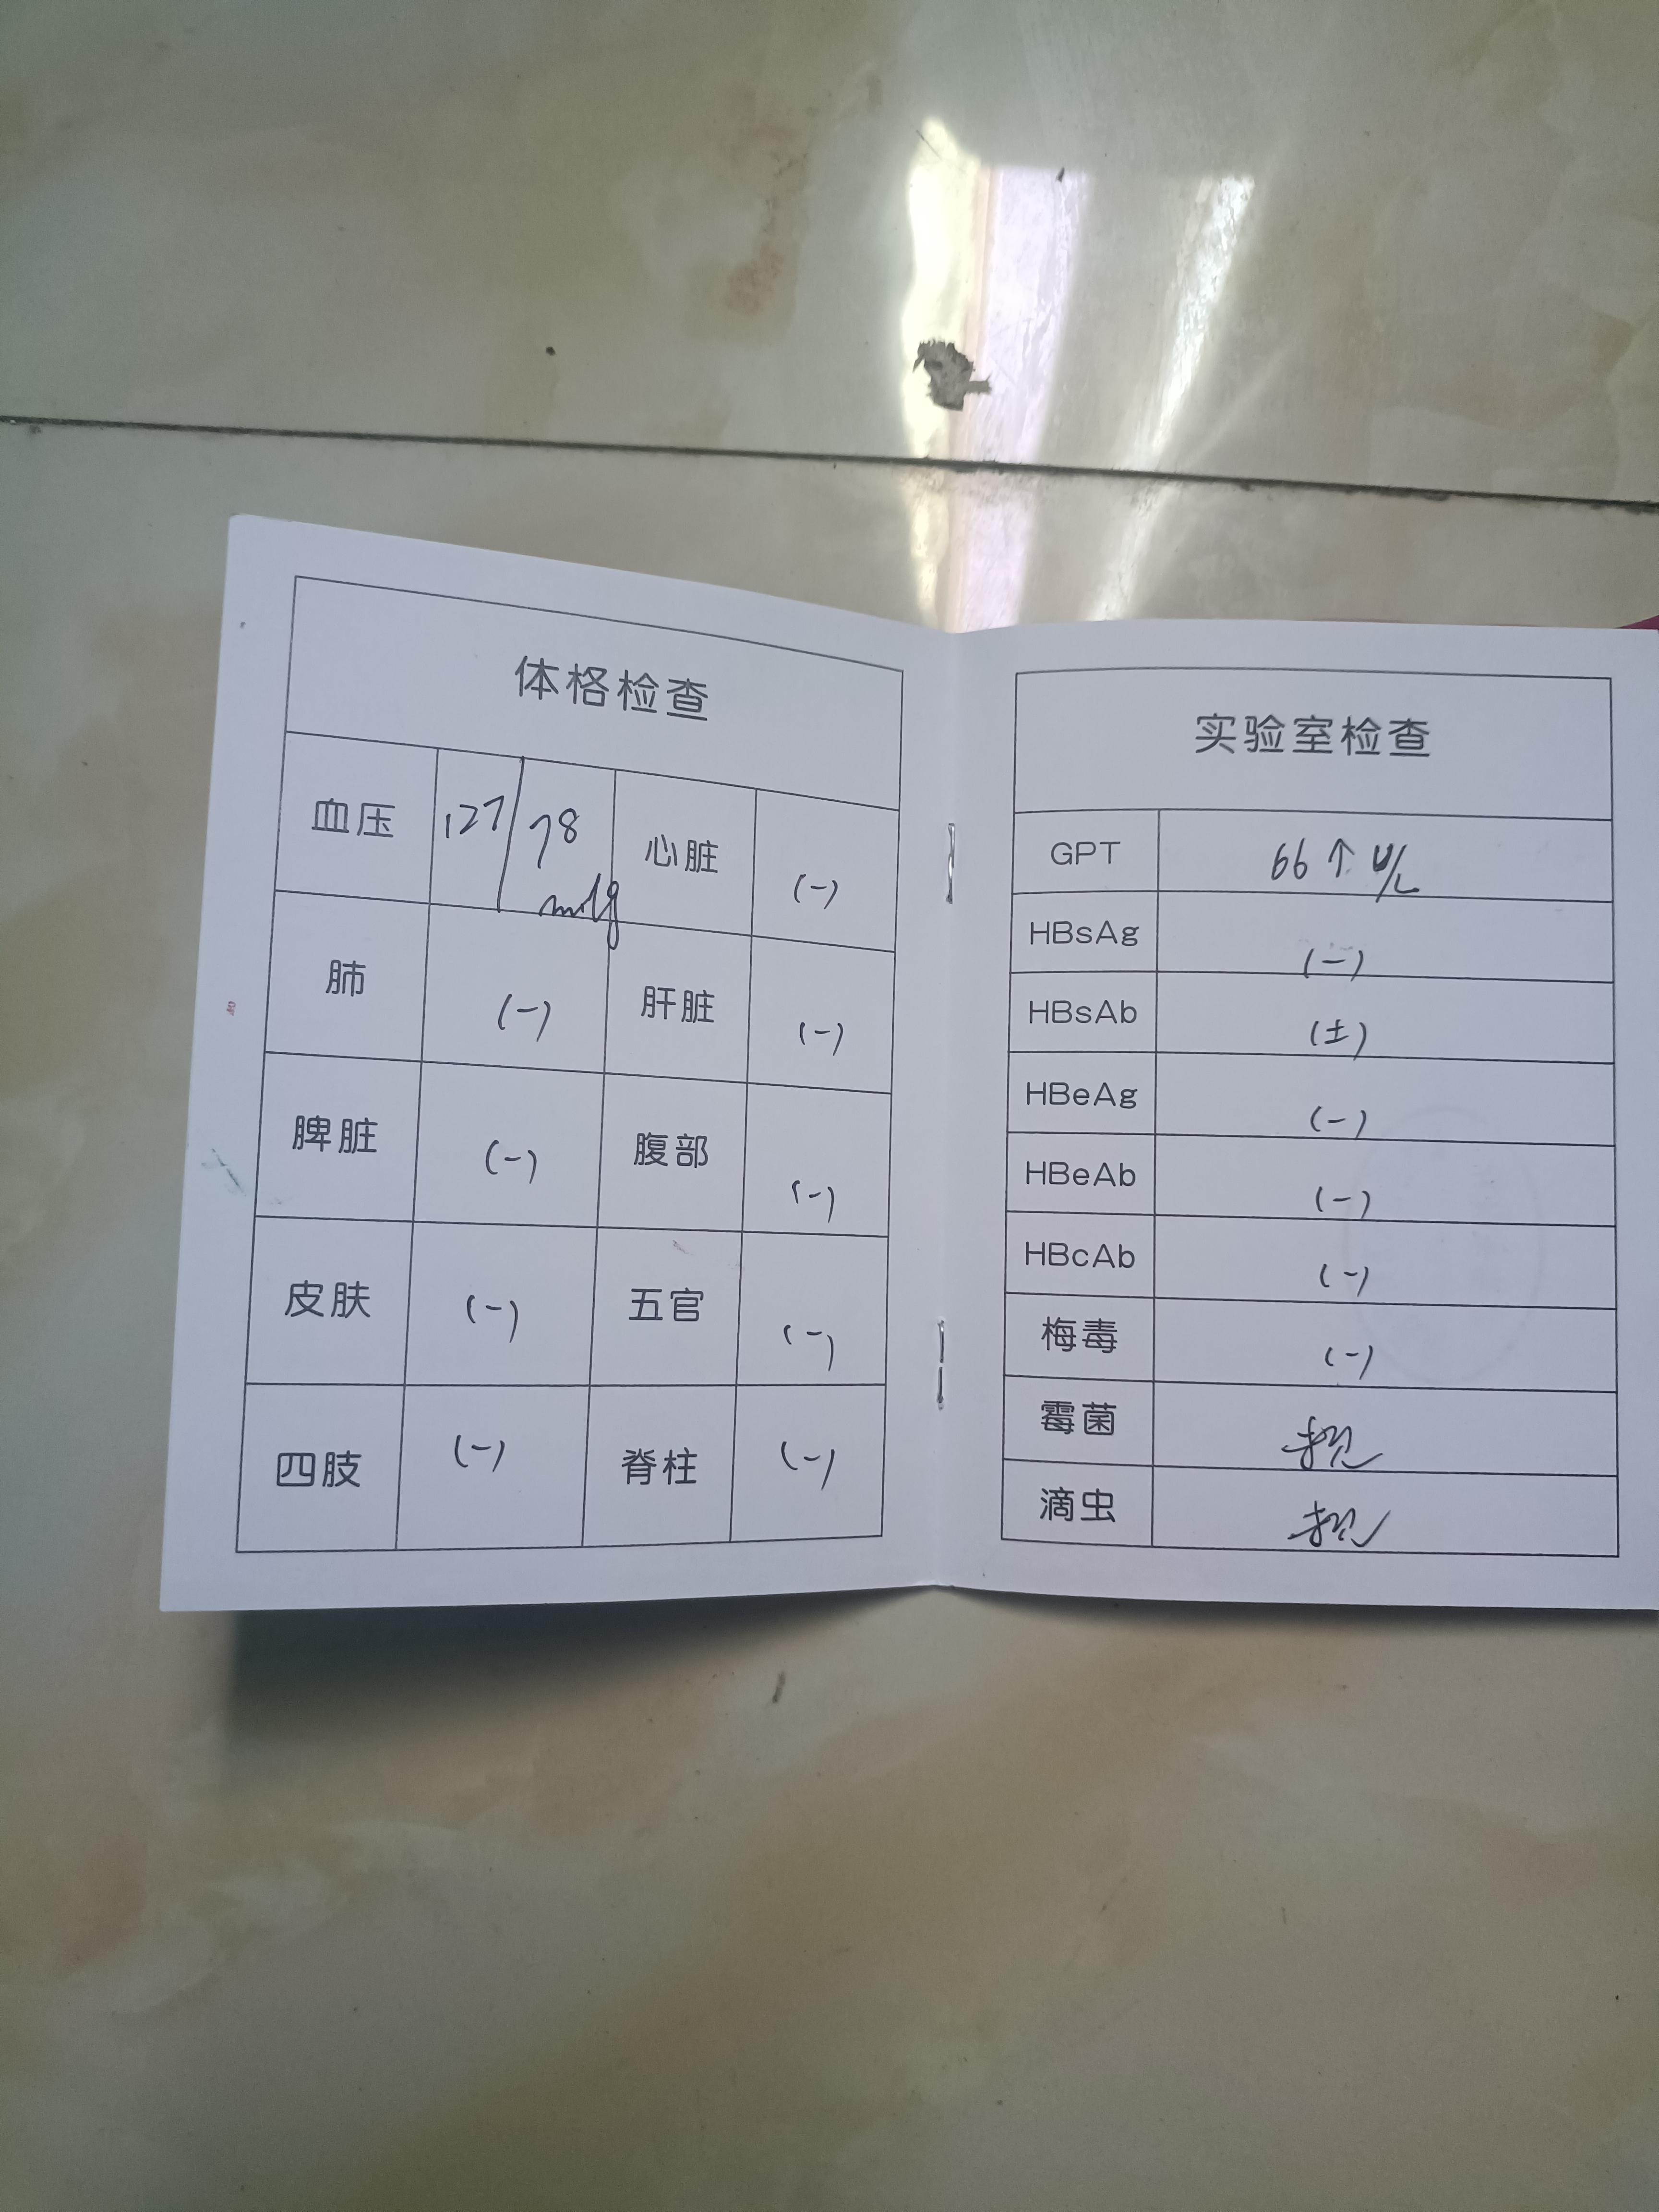 体格检查
血压 127/78 mmHg 心脏 (-)
肺 (-) 肝脏 (-)
脾脏 (-) 腹部 (-)
皮肤 (-) 五官 (-)
四肢 (-) 脊柱 (-)
实验室检查
GPT 66↑ U/L
HBsAg (-)
HBsAb (±)
HBeAg (-)
HBeAb (-)
HBcAb (-)
梅毒 (-)
霉菌 未见
滴虫 未见